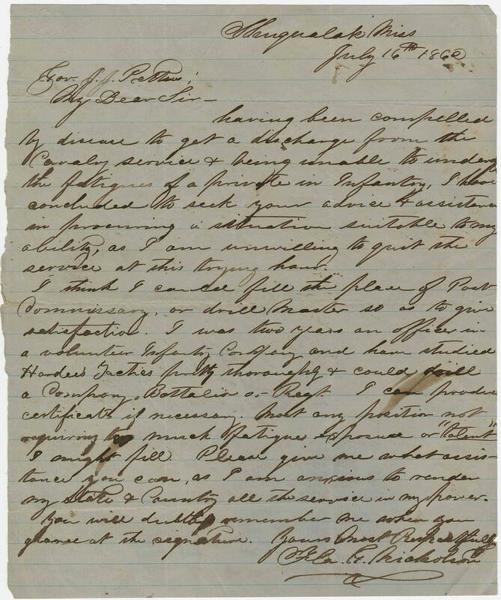 Shuqualak Miss
July 16th 1862
Gov. J. J. Pettus;
My Dear Sir—
having been compelled
by disease to get a discharge from the
Cavalry service & being unable to undergo
the fatigues of a private in Infantry, I have
concluded to seek your advice & assistance
in procuring a situation suitable to my
ability, as I am unwilling to quit the
service at this trying hour.
I think I could fill the place of Post
Commissary, or drill Master so as to give
satisfaction. I was two years an officer in
a volunteer Infantry Company and have studied
Hardees Tactics pretty thoroughly & could drill
a Company, Battalion or Regt. I can produce
certificate if necessary. Most any position not
requiring too much fatigue, exposure or "talent"
I might fill. Please give me what assis-
tance you can, as I am anxious to render
my State & Country all the service in my power.
You will doubtless remember me when you
glance at the signature. Yours Most Respectfully
G. Nicholson